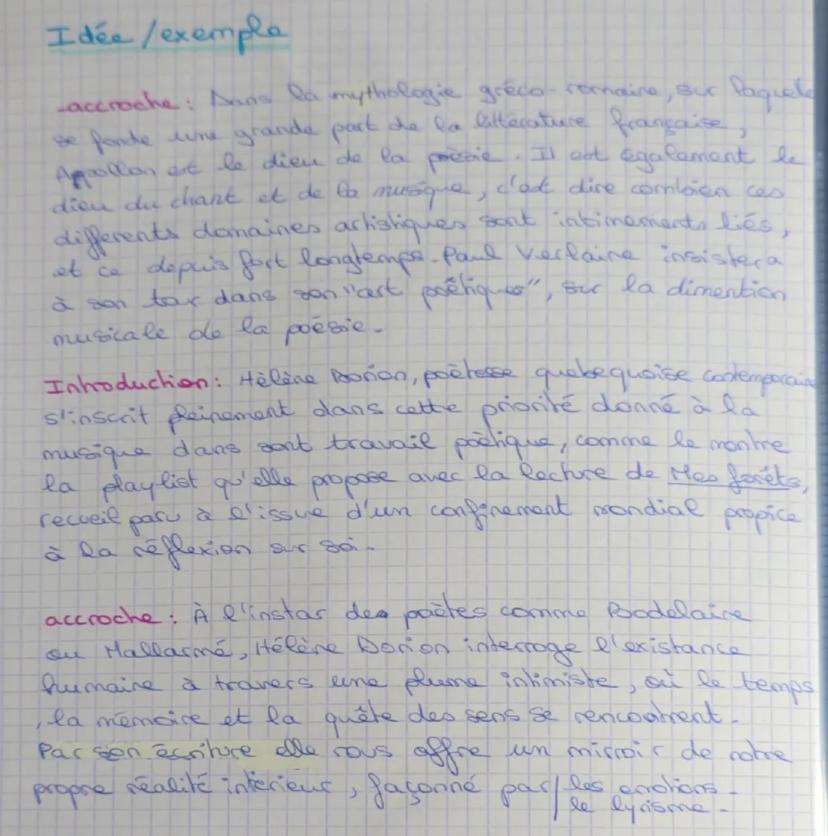 Idée / exemple
-accroche : Dans la mythologie gréco-romaine, sur laquelle
se fonde une grande part de la littérature française,
Appollon est le dieu de la poésie. Il est également le
dieu du chant et de la musique, c'est dire combien ces
differents domaines artistiques sont intimements liés,
et ce depuis fort longtemps. Paul Verlaine insistera
à son tour dans son "art poétique", sur la dimention
musicale de la poésie.
Introduction : Hélène Dorion, poétesse quebequoise contemporaine
s'inscrit pleinement dans cette priorité donné à la
musique dans sont travail poétique, comme le montre
la playlist qu'elle propose avec la lecture de Mes forêts,
recueil paru à l'issue d'un confinement mondial propice
à la réflexion sur soi.
accroche : À l'instar des poètes comme Bodelaire
ou Mallarmé, Hélène Dorion interroge l'existance
humaine à travers une plume intimiste, où le temps
, la mémoire et la quête des sens se rencontrent.
Par son écriture elle nous offre un miroir de notre
propre réalité intérieur, façonné par / les emotions.
le lyrisme.